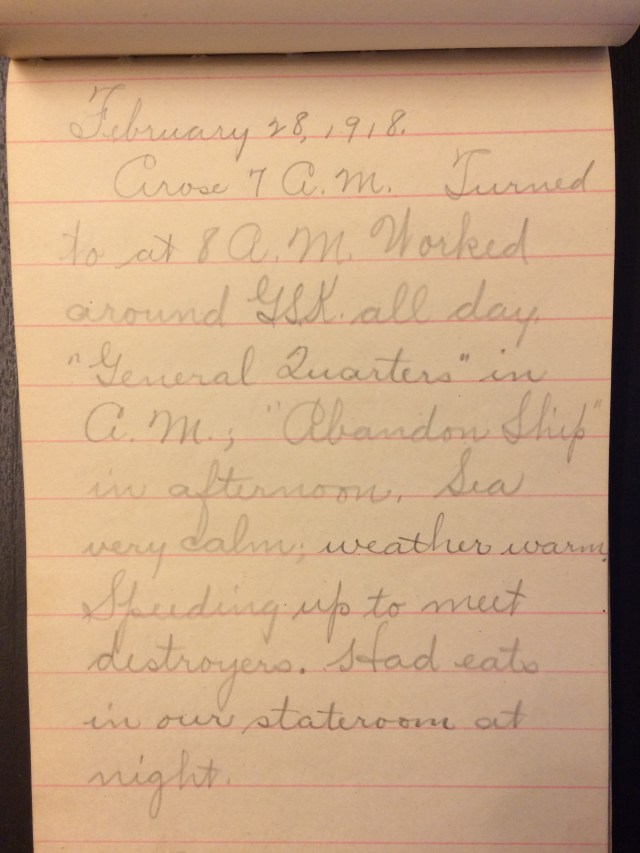 February 28, 1918.
Arose 7 A.M. Turned
to at 8 A.M. Worked
around G.S.K. all day.
"General Quarters" in
A.M.; "Abandon Ship"
in afternoon. Sea
very calm; weather warm.
Speeding up to meet
destroyers. Had eats
in our stateroom at
night.